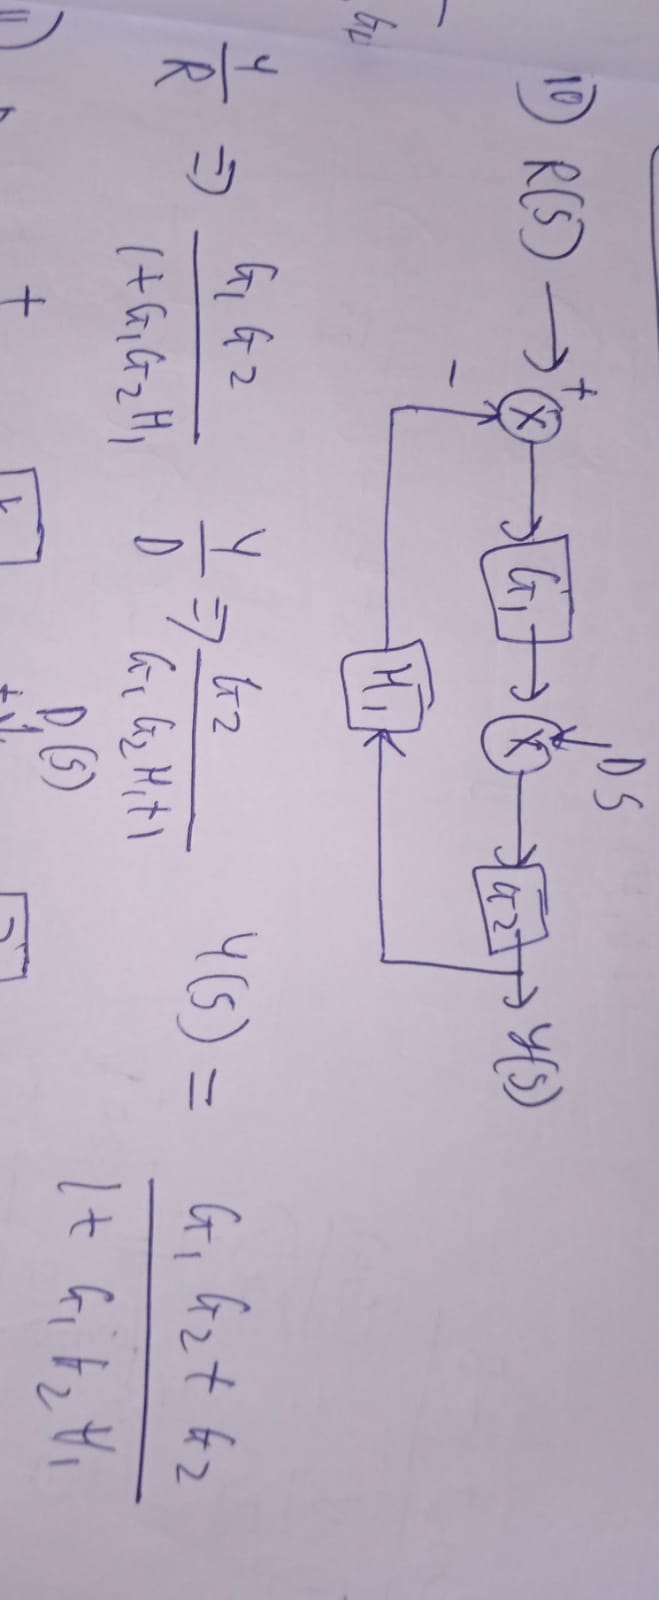 10) R(S) → + X → G₁ → X → G₂ → Y(S)
DS
-
H₁
Y/R ⇒ G₁G₂/1+G₁G₂H₁ Y/D ⇒ G₂/G₁G₂H₁+1 Y(S) = G₁G₂+G₂/1+G₁G₂H₁
11)
+
D(S)